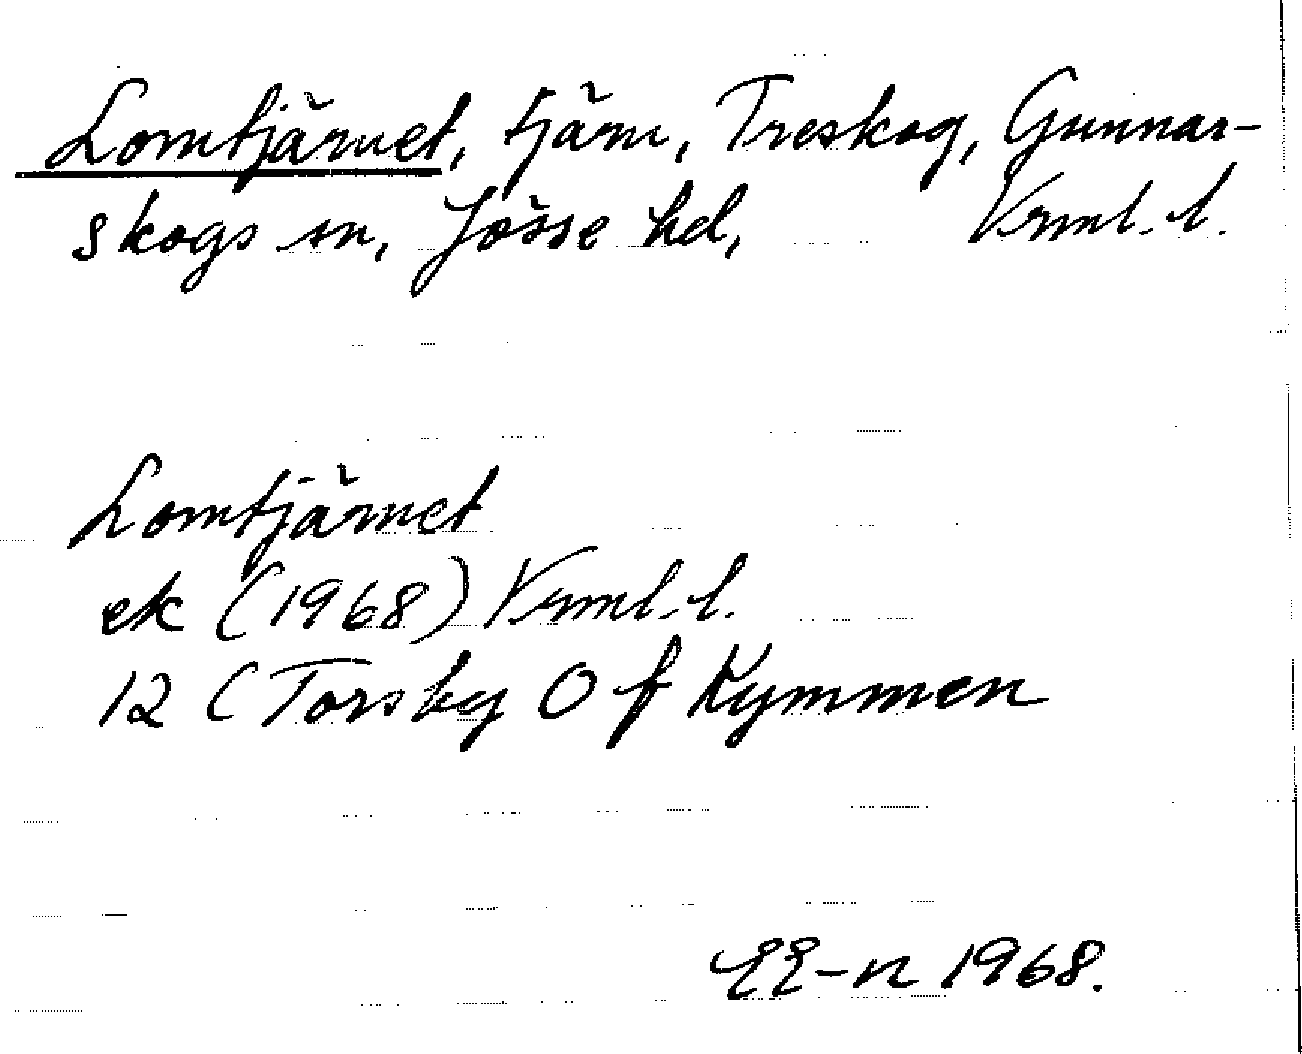 Lomtjärnet, tjärn, Treskog, Gunnar-
skogs sn, Jösse hd, Vrml. l.
Lomtjärnet
ek (1968) Vrml. l.
12 C Torsby O f Kymmen
EE-n 1968.